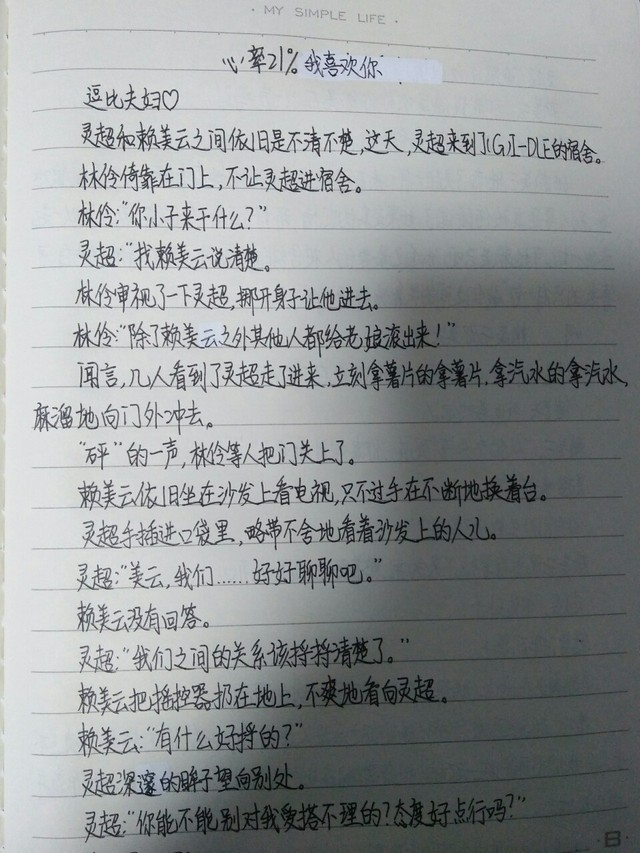 · MY SIMPLE LIFE ·
心率21% 我喜欢你
逗比夫妇♡
灵超和赖美云之间依旧是不清不楚,这天,灵超来到了(G)I-DLE的宿舍。
林伶倚靠在门上,不让灵超进宿舍。
林伶:“你小子来干什么?”
灵超:“找赖美云说清楚。
林伶审视了一下灵超,挪开身子让他进去。
林伶:“除了赖美云之外其他人都给老娘滚出来!”
闻言,几人看到了灵超走了进来,立刻拿薯片的拿薯片,拿汽水的拿汽水,
麻溜地向门外冲去。
“砰”的一声,林伶等人把门关上了。
赖美云依旧坐在沙发上看电视,只不过手在不断地换着台。
灵超手插进口袋里,略带不舍地看着沙发上的人儿。
灵超:“美云,我们……好好聊聊吧。”
赖美云没有回答。
灵超:“我们之间的关系该捋捋清楚了。”
赖美云把摇控器扔在地上,不爽地看向灵超。
赖美云:“有什么好捋的?”
灵超深邃的眸子望向别处。
灵超:“你能不能别对我爱搭不理的?态度好点行吗?”